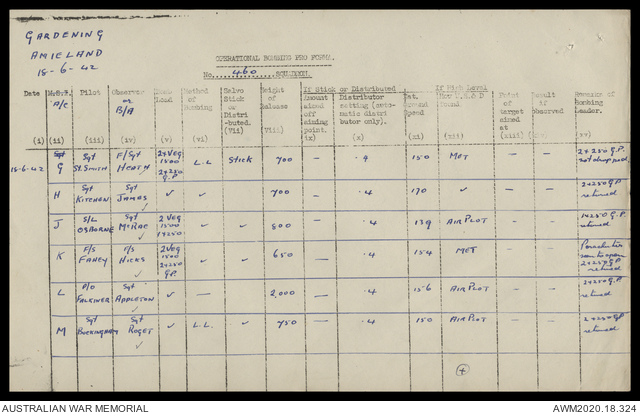 GARDENING
AMIELAND
18-6-42
OPERATIONAL BOMBING PRO FORMA.
No. 460 SQUADRON.
Date A/C Pilot Observer or B/A Bomb Load Method of Bombing Salvo Stick or Distributed. Height of Release If Stick or Distributed Amount aimed off aiming point. Distributor setting (automatic distributor only). Ground Speed If High Level How W.S.&D found. Point of target aimed at Result if observed Remarks of Bombing Leader.
(i) (ii) (iii) (iv) (v) (vi) (vii) (viii) (ix) (x) (xi) (xii) (xiii) (xiv) (xv)
18-6-42 G Sgt St. Smith F/Sgt Heath 2 x Veg 1500 2x250 G.P. L.L Stick 700 — .4 150 MET 2x250 G.P. not dropped
H Sgt Kitchen Sgt James ✓ ✓ 700 — .4 170 ✓ 2x250 G.P. returned
J S/L Osborne Sgt McRae 2 Veg 1500 1x250 ✓ ✓ 800 — .4 139 AIR PLOT 1x250 G.P. returned
K F/S Fahey F/S Hicks 2 Veg 1500 2x250 G.P. ✓ ✓ 650 — .4 154 MET Parachutes seen to open 2x250 G.P. returned
L P/O Falkiner Sgt Appleton ✓ — 2,000 — .4 156 AIR PLOT 2x250 G.P. returned
M Sgt Buckingham Sgt Roget ✓ L.L. ✓ 750 — .4 150 AIR PLOT 2x250 G.P. returned
AUSTRALIAN WAR MEMORIAL
AWM2020.18.324